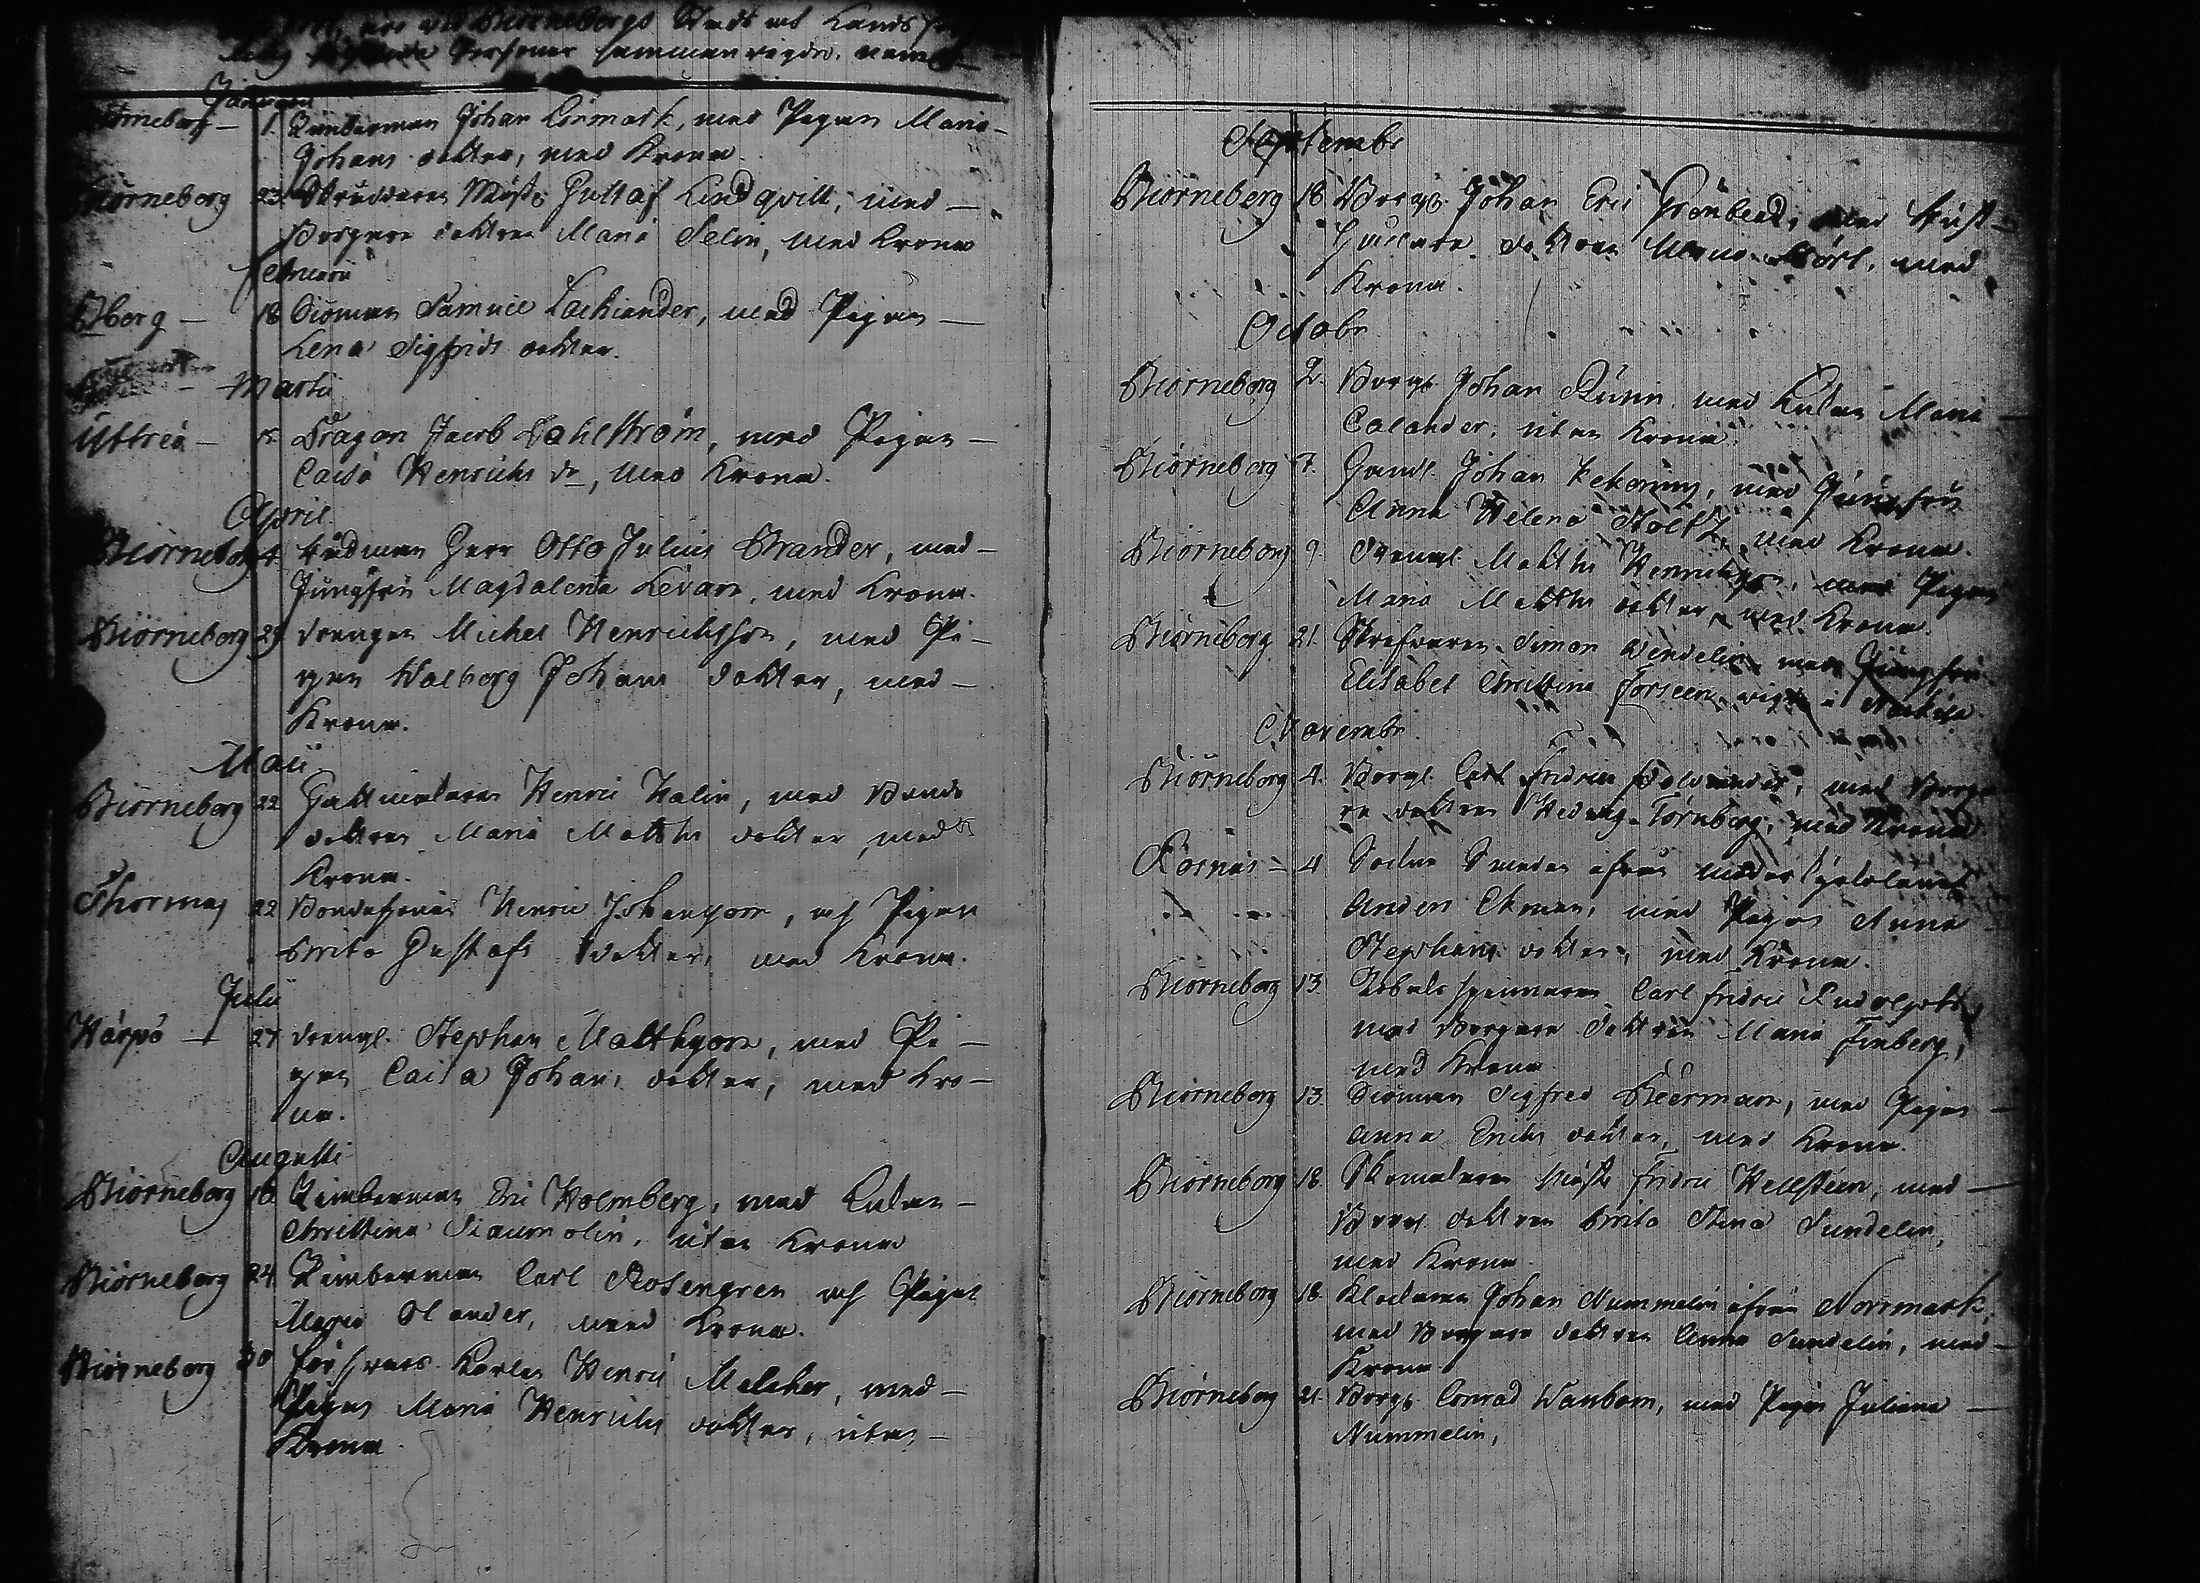 äro wid Biörneborgs Stads och Lands
Personer sammanwigde. nemel.
Januarii
Biörneborg — 1. Timberman Johan Lönmark, med Pigan Maria
Johans dotter, med Krona.
Biörneborg 23. Skräddaren Mäst. Gustaf Lindqvist, med —
Borgare dottren Maria Selin, med Krona
Februarii
Biberg — 18 Siöman Samuel Lachiander, med Pigan —
Lena Sigfrids dotter.
Martii
Ytterå — Dragon Jacob Dahlström, med Pigan —
Caisa Henrichs dr, med Krona.
April
Biörneborg 4. Rådman Herr Otto Julius Brander, med —
Jungfru Magdalena Levan, med Krona.
Biörneborg 29 Drengen Michel Henrichsson, med Pi-
gan Walborg Johans dotter, med —
Krona.
Maii
Biörneborg 22. Hattmakaren Henric Walin, med Bonde
dottren Maria Matths dotter, med
Krona.
Thornäs 22 Bondesonen Henric Johansson, och Pigan
Brita Gustafs dotter, med Krona.
Julii
Härpö — 27 Drengl. Stephan Matthsson, med Pi —
gan Caisa Johans dotter, med Kro —
na.
Augusti
Biörneborg 18. Timberman Eric Holmberg, med Enkan —
Christina utan Krona
Biörneborg 24. Timberman Carl Rosengren och Pigan
Maria Olander, med Krona.
Biörneborg 30 Försvars Karlen Henric Melcher, med —
Pigan Maria Henrichs dotter, utan —
Krona.
Septembr
Biörneborg 18 Borg. Johan Eric Grönbeck, med
dottren Maria med
Krona.
Octobr
Biörneborg 2. Borg. Johan Runin, med Enkan Maria —
Calander, utan Krona.
Biörneborg 7. Handl. Johan med Jungfru
Anna Helena Stoltz, med Krona.
Biörneborg 9. Drengl. Matths Henrichsson, med Pigan
Maria Matths dotter, med Krona.
Biörneborg 21. Simon Wendelin, med Jungfru
Elisabet Christina Forseen, wigde i
Novembr.
Biörneborg 4. Borgl. Carl Fridric med Borga
re dottren Hedwig Törnberg, med Krona
Rosnäs — 4 Sockne Smeden ifrån
Anders Ekman, med Pigan Anna
Stephans dotter, med Krona.
Biörneborg 13. Tobaks spinnaren Carl Fridric Rudolph
med Borgare dottren Maria Finberg,
med Krona.
Biörneborg 13. Siöman Sigfred Beerman, med Pigan —
Anna Erichs dotter, med Krona.
Biörneborg 18. Skomakaren Mäst. Fridric Hellsteen, med —
Borg. dottren Brita Stina Sundelin,
med Krona.
Biörneborg 18. Klockaren Johan Nummelin ifrån Norrmark,
med Borgare dottren Anna Sundelin, med —
Krona.
Biörneborg 21. Borg. Conrad Wanbom, med Pigan Juliana —
Nummelin,